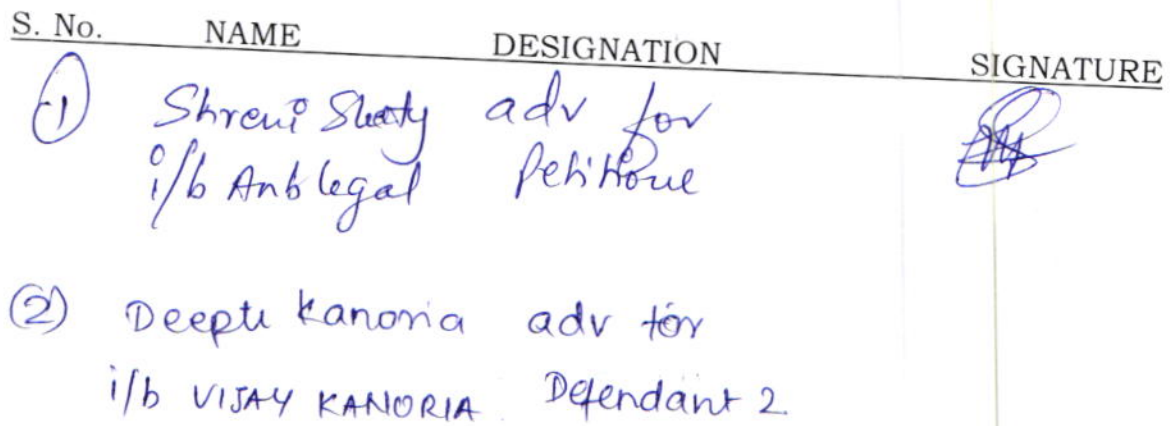 S. No. NAME DESIGNATION SIGNATURE
1 Shreni Shetty adv for
i/b Anb legal Petitione
2 Deepti Kanoria adv for
i/b VIJAY KANORIA Defendant 2